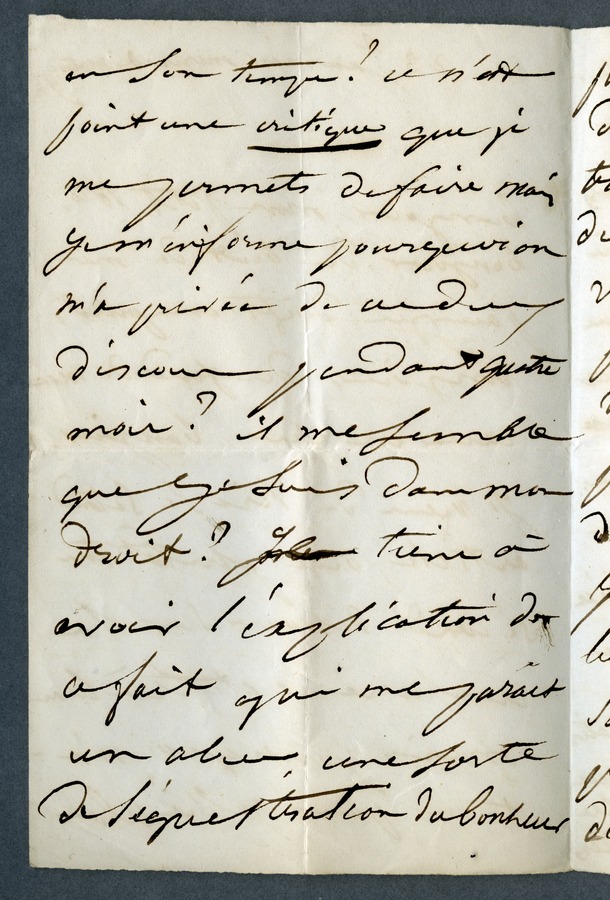 en son temps? ce n'est
point une critique que je
me permets de faire mais
je m'informe pourquoi on
m'a privée de ce
discours pendant quatre
mois? il me semble
que je suis dans mon
droit? Je tiens à
avoir l'éxplication de
ce fait qui me parait
un abus, une sorte
de séquestration du bonheur